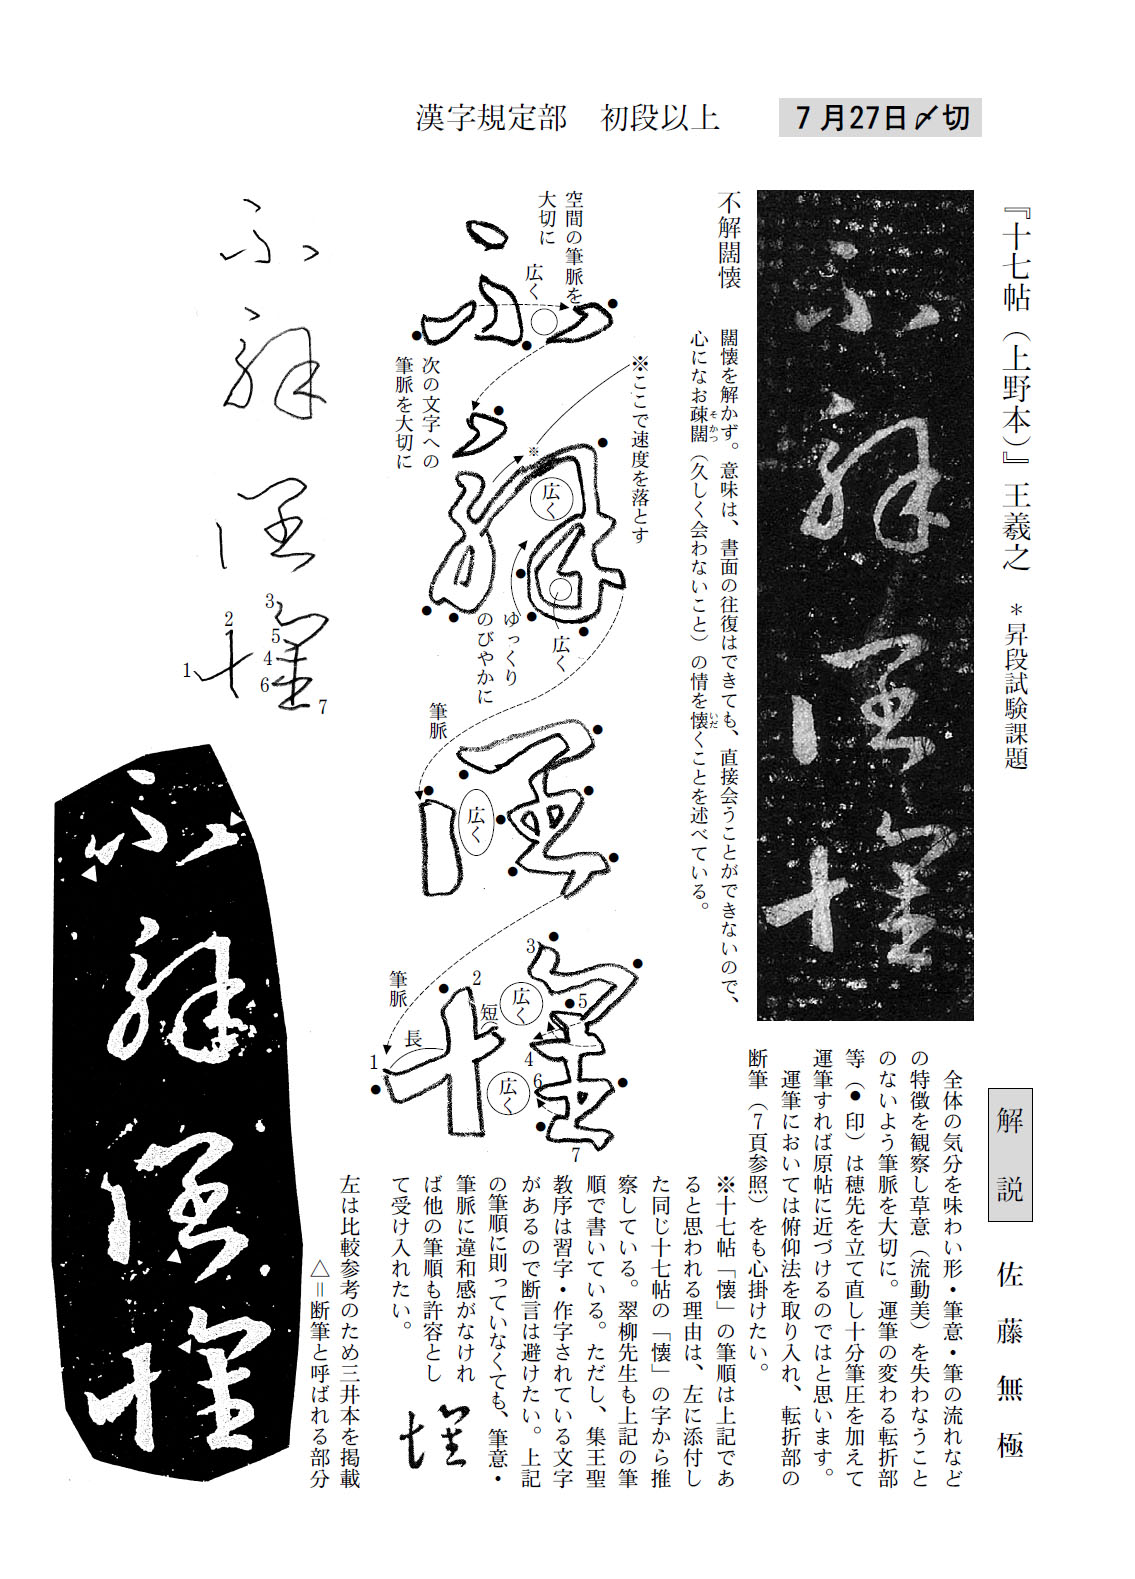 漢字規定部　初段以上
７月27日〆切
『十七帖（上野本）』王羲之　＊昇段試験課題
不解闊懐
闊懐を解かず。意味は、書面の往復はできても、直接会うことができないので、
心になお疎闊（久しく会わないこと）の情を懐くことを述べている。
そかつ
いだ
空間の筆脈を
大切に
広く
次の文字への
筆脈を大切に
※ここで速度を落とす
※
広く
広く
ゆっくり
のびやかに
筆脈
広く
筆脈
長
短
広く
広く
1
2
3
4
5
6
7
1
2
3
5
4
6
7
解説
佐藤無極
全体の気分を味わい形・筆意・筆の流れなど
の特徴を観察し草意（流動美）を失わなうこと
のないよう筆脈を大切に。運筆の変わる転折部
等（●印）は穂先を立て直し十分筆圧を加えて
運筆すれば原帖に近づけるのではと思います。
運筆においては俯仰法を取り入れ、転折部の
断筆（７頁参照）をも心掛けたい。
※十七帖「懐」の筆順は上記であ
ると思われる理由は、左に添付し
た同じ十七帖の「懐」の字から推
察している。翠柳先生も上記の筆
順で書いている。ただし、集王聖
教序は習字・作字されている文字
があるので断言は避けたい。上記
の筆順に則っていなくても、筆意・
筆脈に違和感がなけれ
ば他の筆順も許容とし
て受け入れたい。
左は比較参考のため三井本を掲載
△＝断筆と呼ばれる部分
不解闊懐
不解闊懐
不解闊懐
不解闊懐
懐